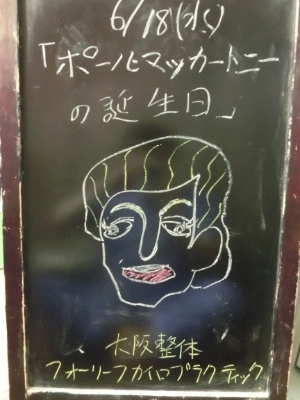 6/18(水)
「ポールマッカートニー
の誕生日」
大阪整体
フォーリーフカイロプラクティック